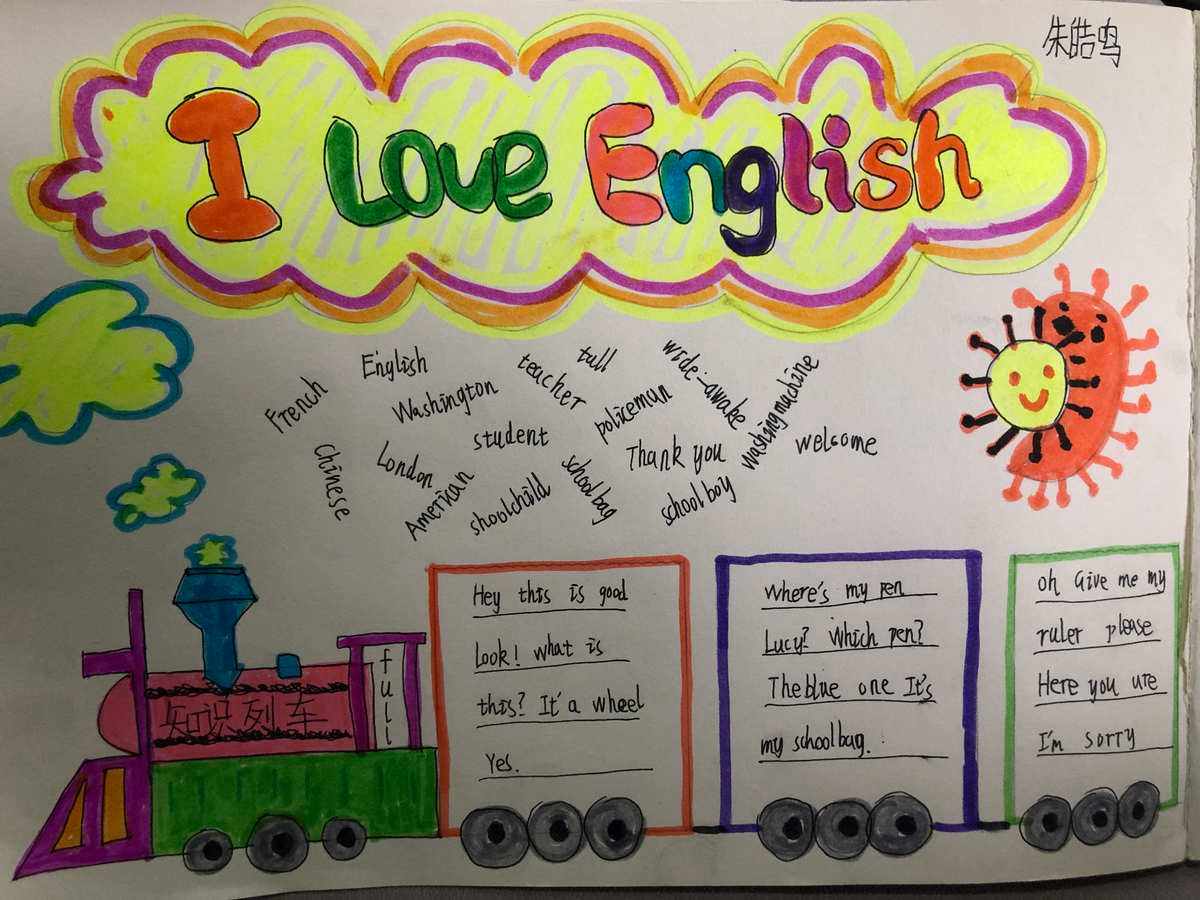 朱皓鸣
I Love English
French
English
Washington
teacher
tall
wide-awake
washing machine
policeman
Chinese
London
student
Thank you
welcome
American
shoolchild
school bag
school boy
知识列车
full
Hey this is good
Look! what is
this? It'a wheel
Yes.
Where's my pen
Lucy? Which pen?
The blue one It's
my schoolbag.
oh Give me my
ruler please
Here you are
I'm sorry